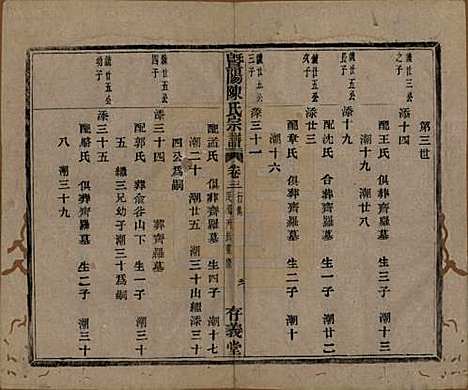 第三世
誠廿五公
之子
添十四
配王氏 俱葬齊羅墓 生二子 潮十三
潮十九 潮廿八
誠廿五公
長子
添十九
配沈氏 合葬齊羅墓 生一子 潮廿二
誠廿五公
次子
添廿三
配章氏 俱葬齊羅墓 生一子 潮十
潮十六
誠廿五公
三子
添三十一
配孟氏 俱葬齊羅墓 生四子 潮十七
潮廿五 潮三十出繼添三十
四公為嗣
暨陽陳氏宗譜
卷三
存義堂
誠廿五公
四子
添三十四
葬齊羅墓
配郭氏 葬俞谷山下 生一子 潮三十
五 繼三兄幼子潮三十為嗣
誠廿五公
幼子
添三十五
配駱氏 俱葬齊羅墓 生二子 潮三十
八 潮三十九